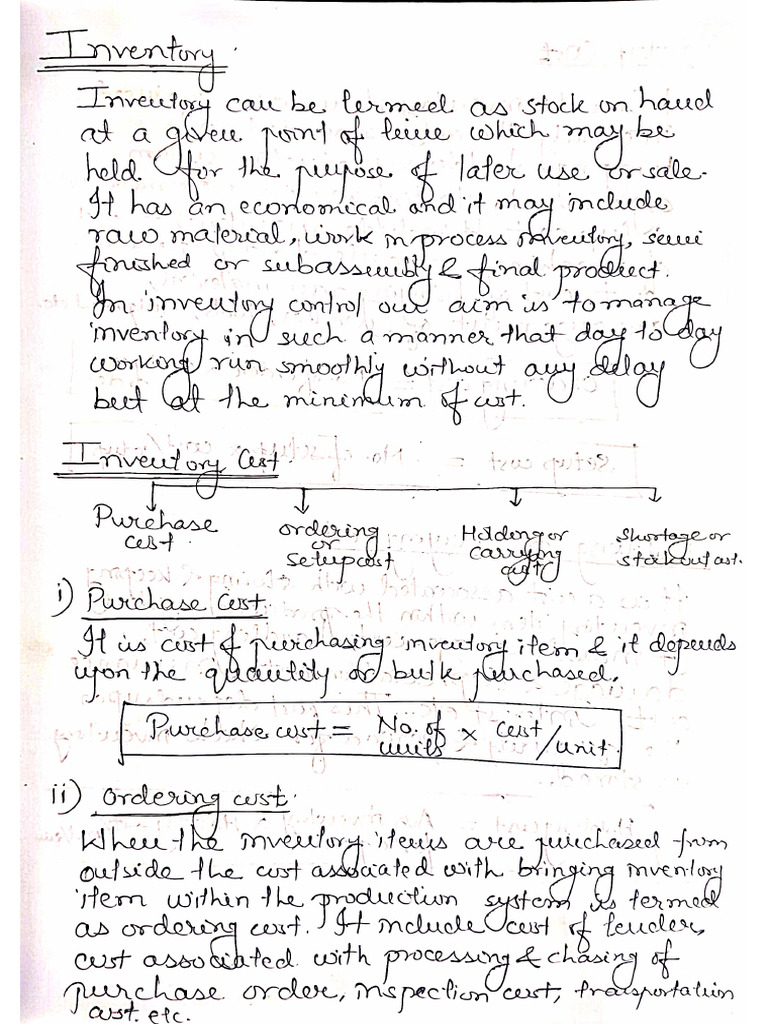 Inventory
Inventory can be termed as stock on hand
at a given point of time which may be
held for the purpose of later use or sale.
It has an economical and it may include
raw material, work in process inventory, semi
finished or subassembly & final product.
In inventory control our aim is to manage
inventory in such a manner that day to day
working run smoothly without any delay
but at the minimum of cost.
Inventory Cost
Purchase cost
ordering or setup cost
Holding or carrying cost
Shortage or stock out cost.
i) Purchase Cost
It is cost of purchasing inventory item & it depends
upon the quantity or bulk purchased.
Purchase cost = No. of units × Cost/unit.
ii) Ordering cost.
When the inventory items are purchased from
outside the cost associated with bringing inventory
item within the production system is termed
as ordering cost. It include cost of tender,
cost associated with processing & chasing of
purchase order, inspection cost, transportation
cost. etc.